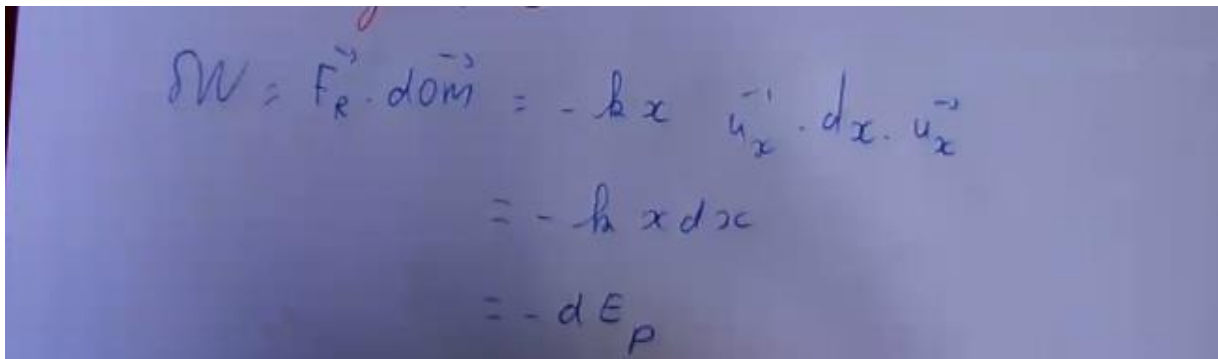 δW = F⃗_R . dOM⃗ = - k x u⃗_x . dx . u⃗_x
= - k x dx
= - d E_p